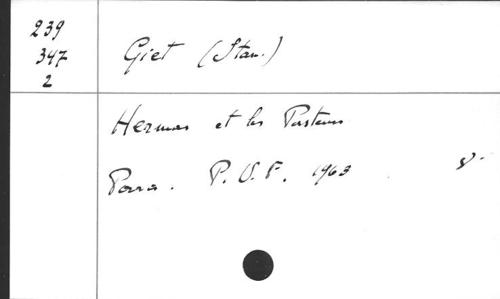 239
347
2
Giet (Stan.)
Hermas et les Pasteurs
Paris. P. U. F. 1963 8°